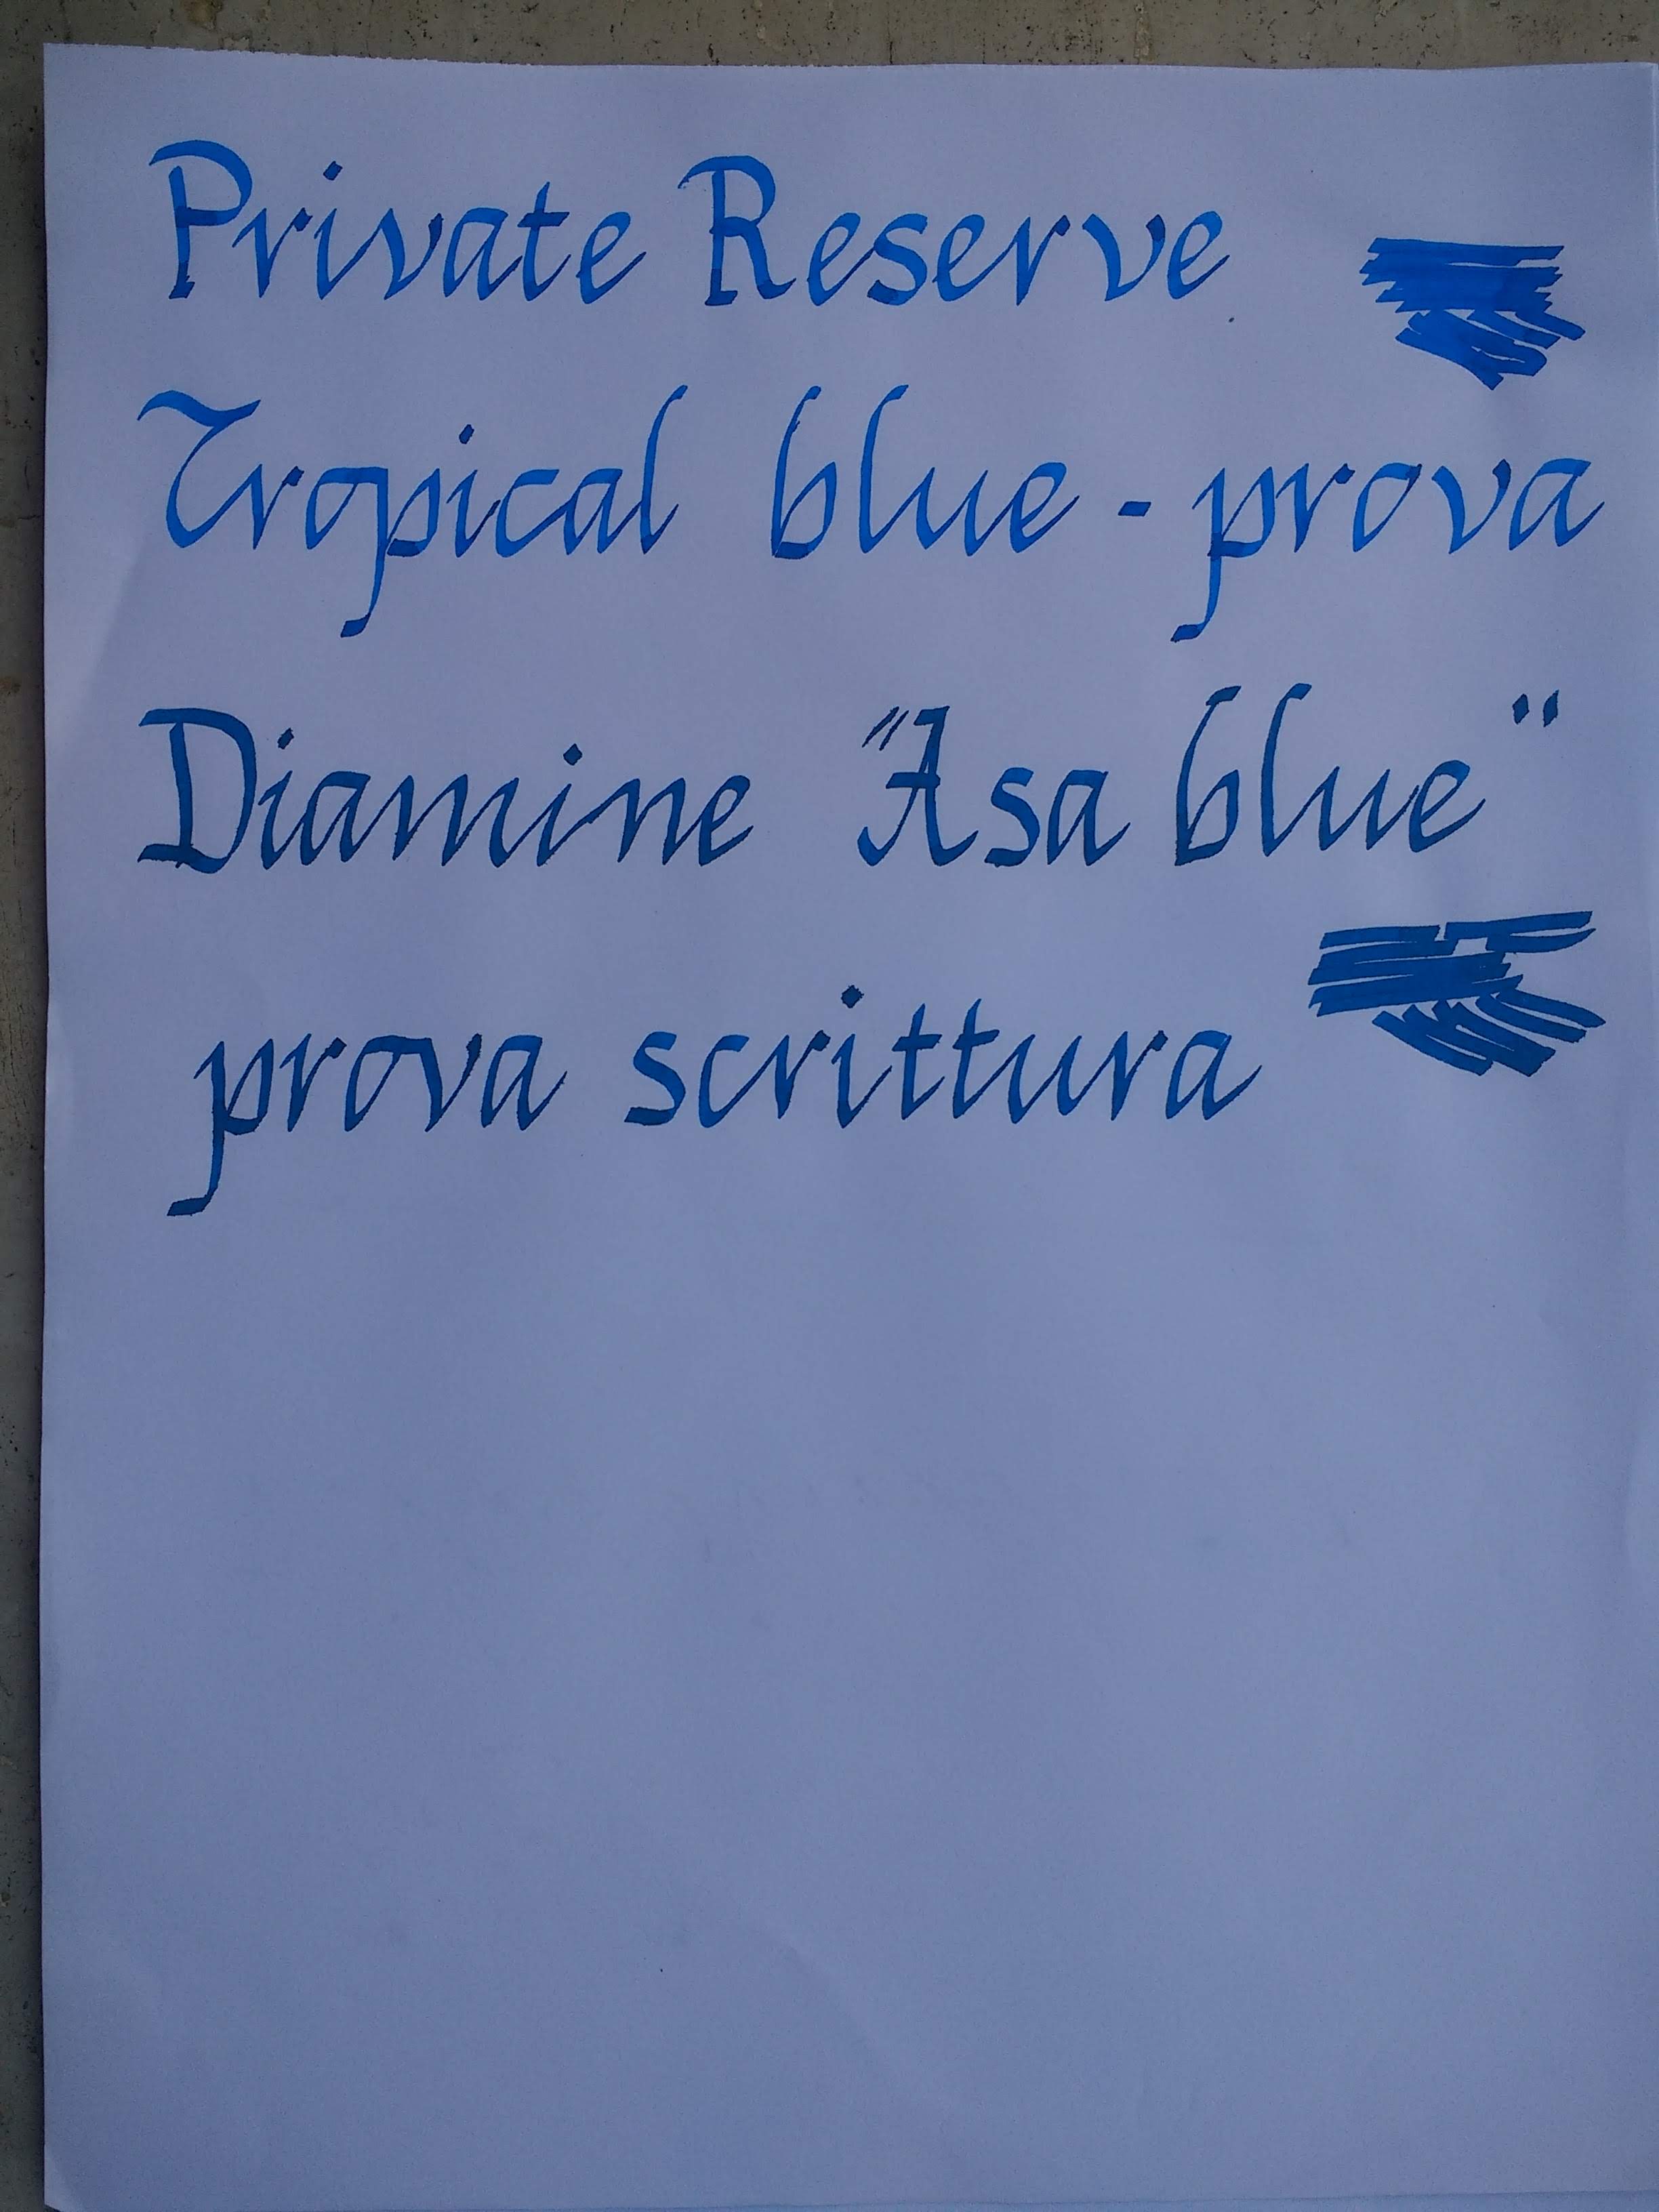 Private Reserve
Tropical blue - prova
Diamine "Asa blue"
prova scrittura